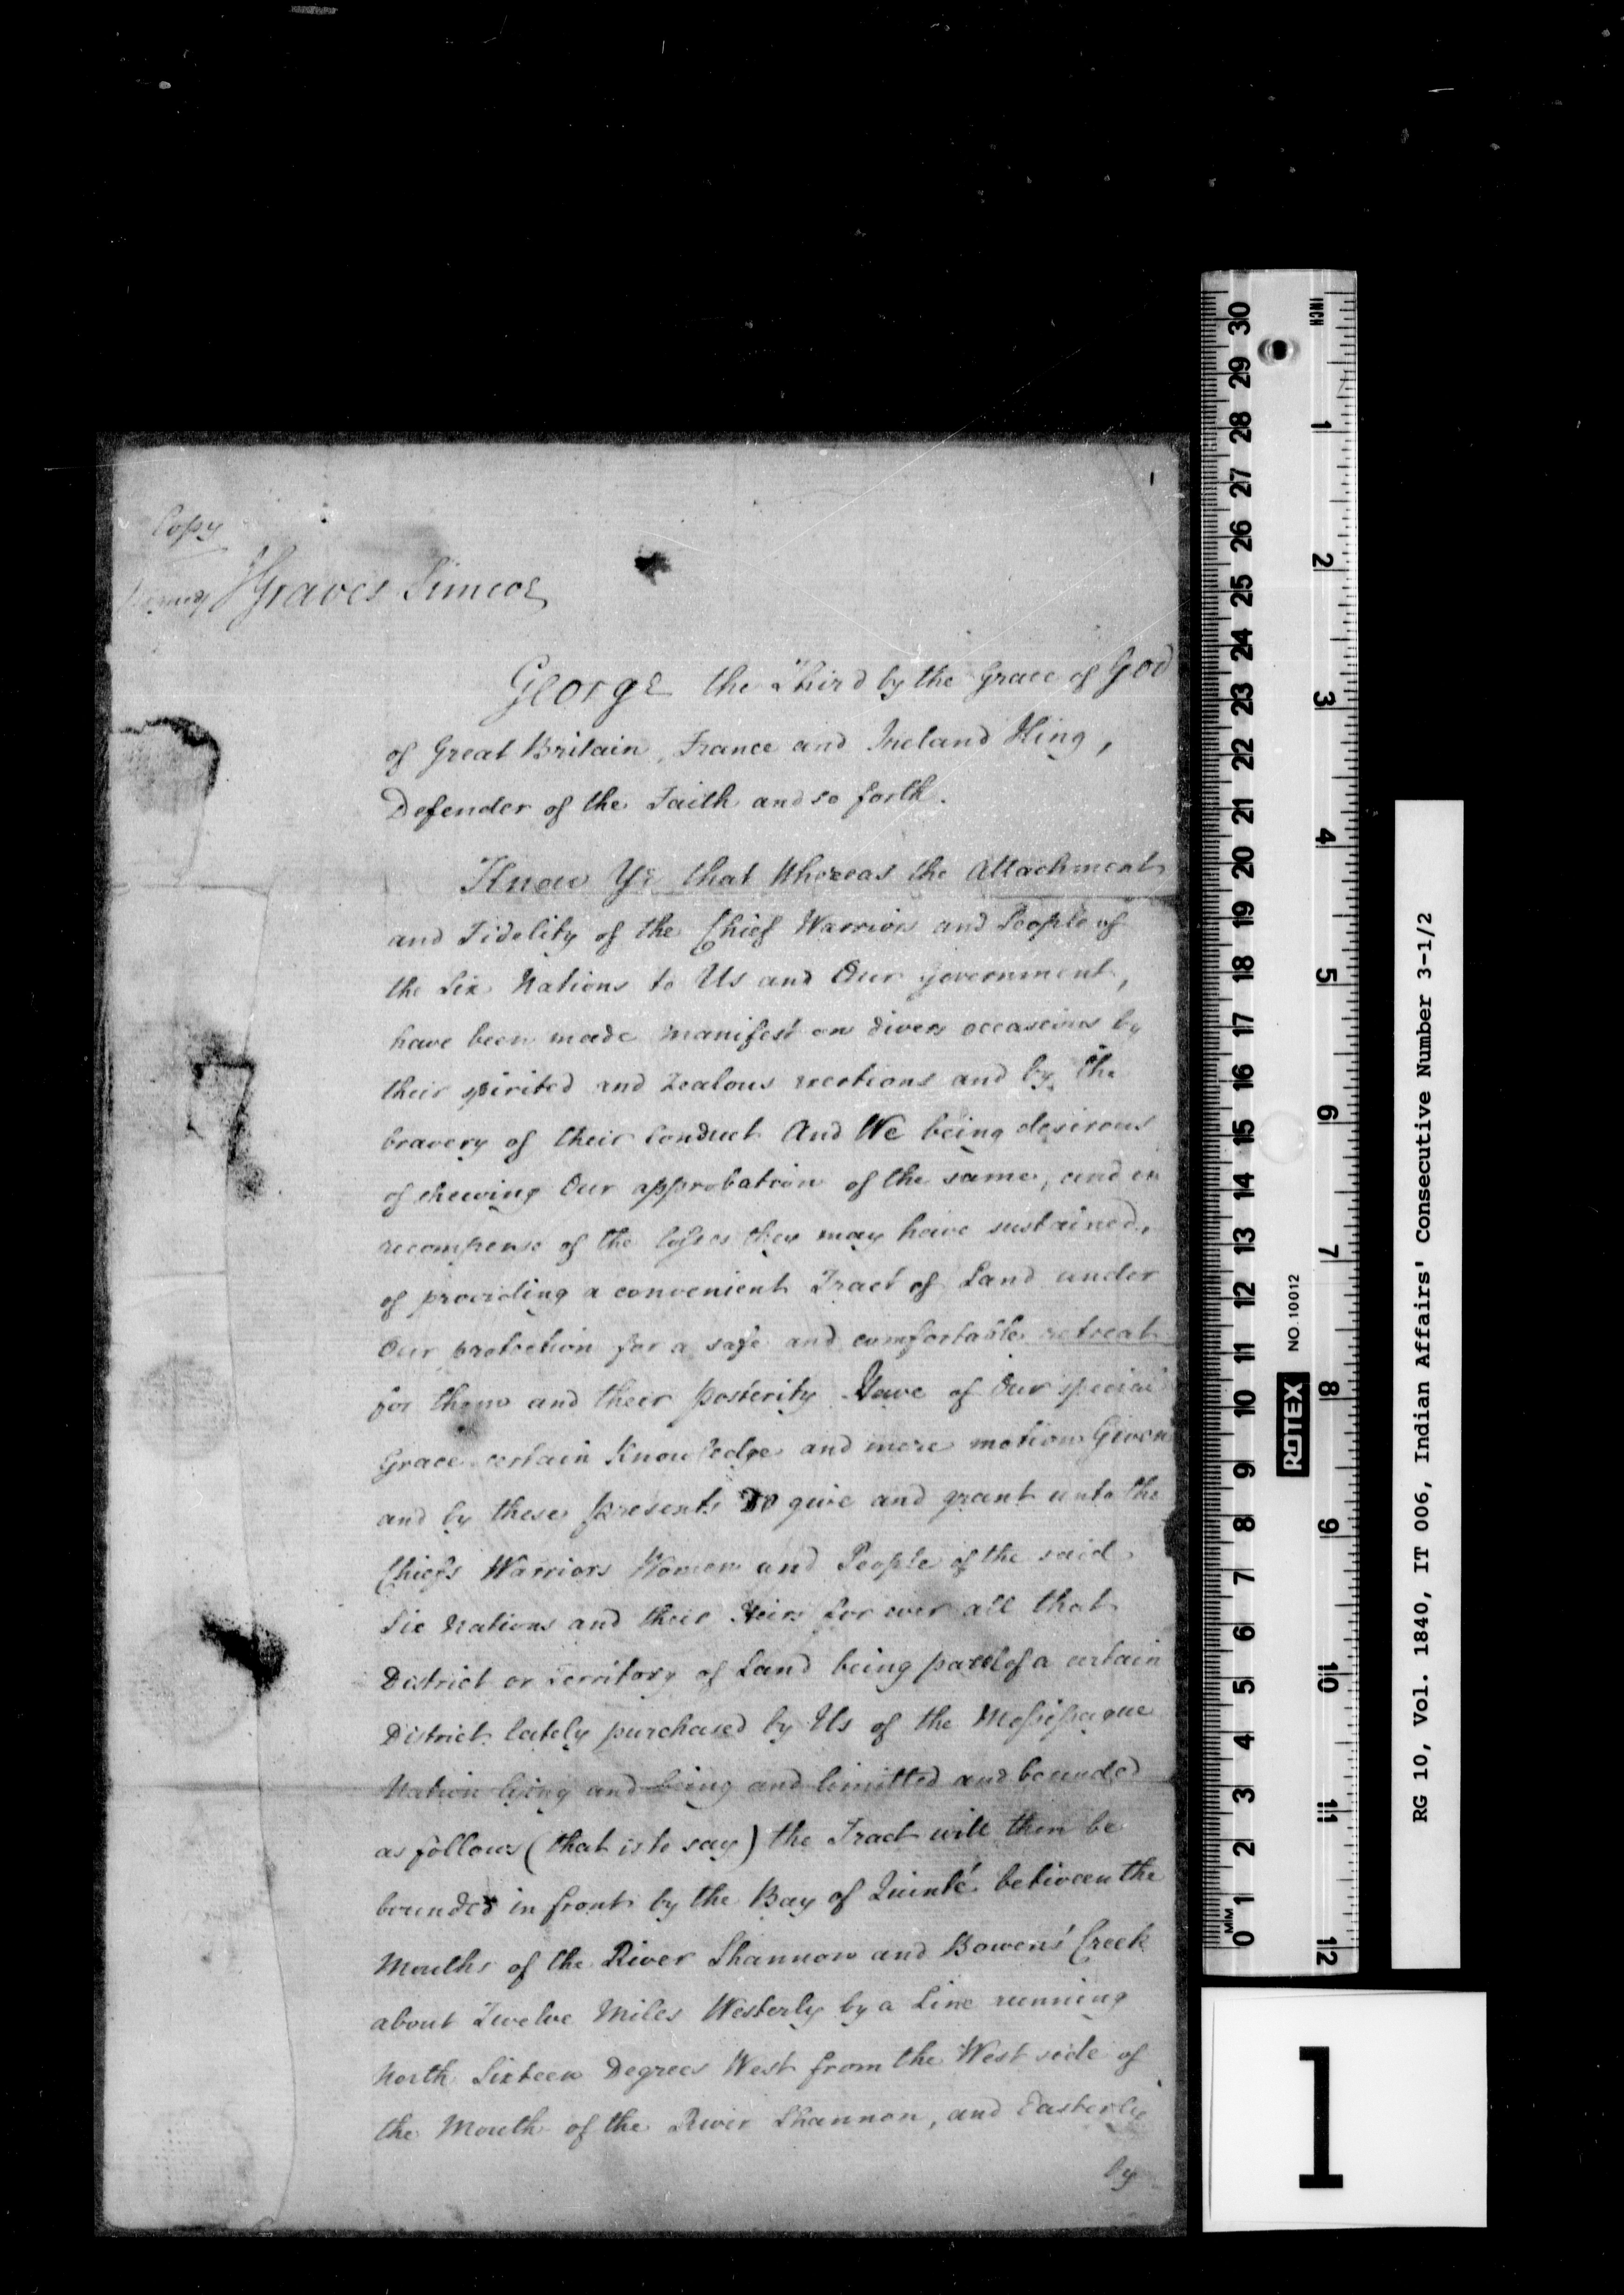 Copy
Signed JGraves Simcoe
George the Third by the Grace of God
of Great Britain, France and Ireland King,
Defender of the Faith and so forth.
Know Ye that Whereas the Attachment
and Fidelity of the Chief Warriors and People of
the Six Nations to Us and Our Government,
have been made manifest on divers occasions by
their spirited and Zealous exertions and by the
bravery of their Conduct And We being desirous
of shewing Our approbation of the same, and in
recompense of the losses they may have sustained,
of providing a convenient Tract of Land under
Our protection for a safe and comfortable retreat
for them and their posterity Have of Our special
Grace certain Knowledge and mere motion Given
and by these presents Do give and grant unto the
Chiefs Warriors Women and People of the said
Six Nations and their Heirs for ever all that
District or Territory of Land being parcel of a certain
District lately purchased by Us of the Messissague
Nation lying and being and limitted and bounded
as follows (that is to say) the Tract will then be
bounded in front by the Bay of Quinté between the
Mouths of the River Shannon and Bowens' Creek
about Twelve Miles Westerly by a Line running
North Sixteen Degrees West from the West side of
the Mouth of the River Shannon, and Easterly
by
INCH
1 2 3 4 5 6 7 8 9 10 11 12
30 29 28 27 26 25 24 23 22 21 20 19 18 17 16 15 14 13 12 11 10 9 8 7 6 5 4 3 2 1 0
MM
ROTEX NO 10012
RG 10, Vol. 1840, IT 006, Indian Affairs' Consecutive Number 3-1/2
1